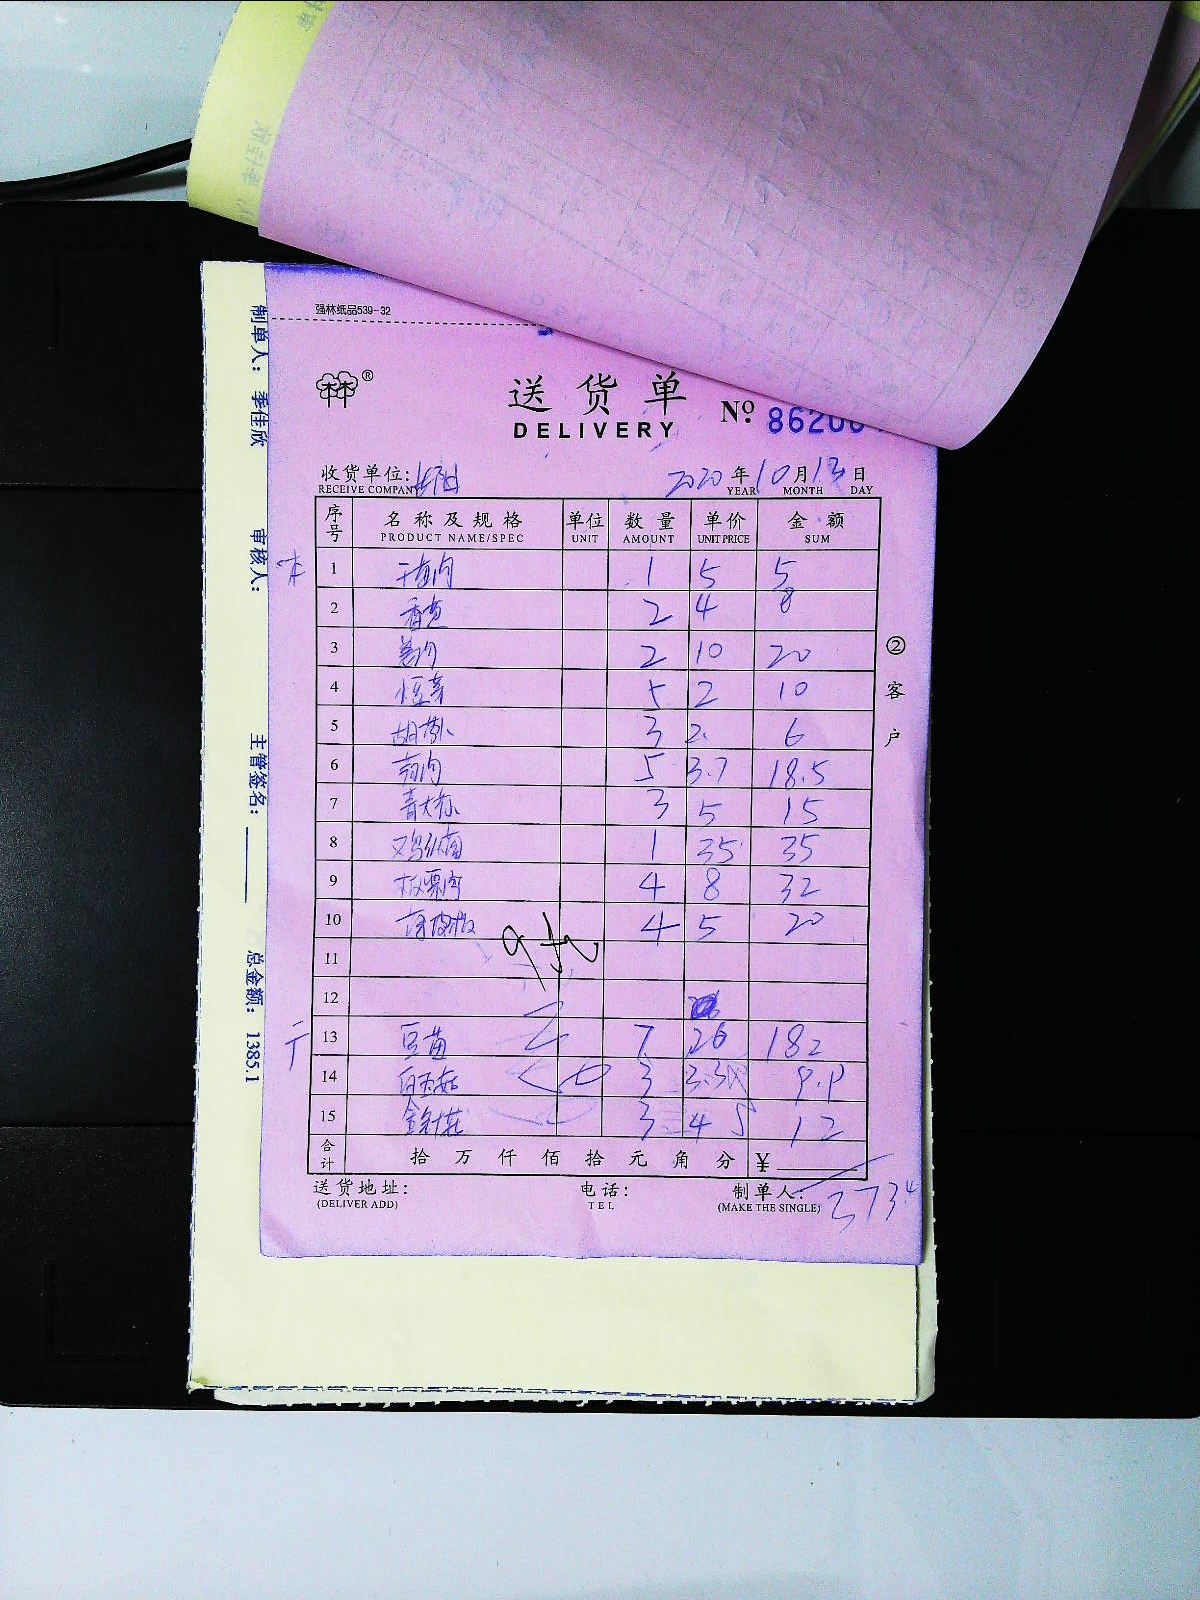 强林纸品539-32
送货单
DELIVERY
№ 86200
收货单位:
RECEIVE COMPANY
2020年10月13日
YEAR MONTH DAY
序号 名称及规格 单位 数量 单价 金额
PRODUCT NAME/SPEC UNIT AMOUNT UNIT PRICE SUM
1 1 5 5
2 香芹 2 4 8
3 2 10 20
4 小豆芽 5 2 10
5 胡萝卜 3 2. 6
6 5 3.7 18.5
7 青大椒 3 5 15
8 鸡纵菌 1 35 35
9 板栗肉 4 8 32
10 4 5 20
11
12
13 豆苗 7 26 182
14 白玉菇 3 3.3 9.9
15 金针菇 3 4 12
合计 拾万仟佰拾元角分 ¥
送货地址: 电话: 制单人:
(DELIVER ADD) TEL (MAKE THE SINGLE)
373.4
②客户
制单人: 季佳欣 审核人: 主管签名: 总金额: 1385.1